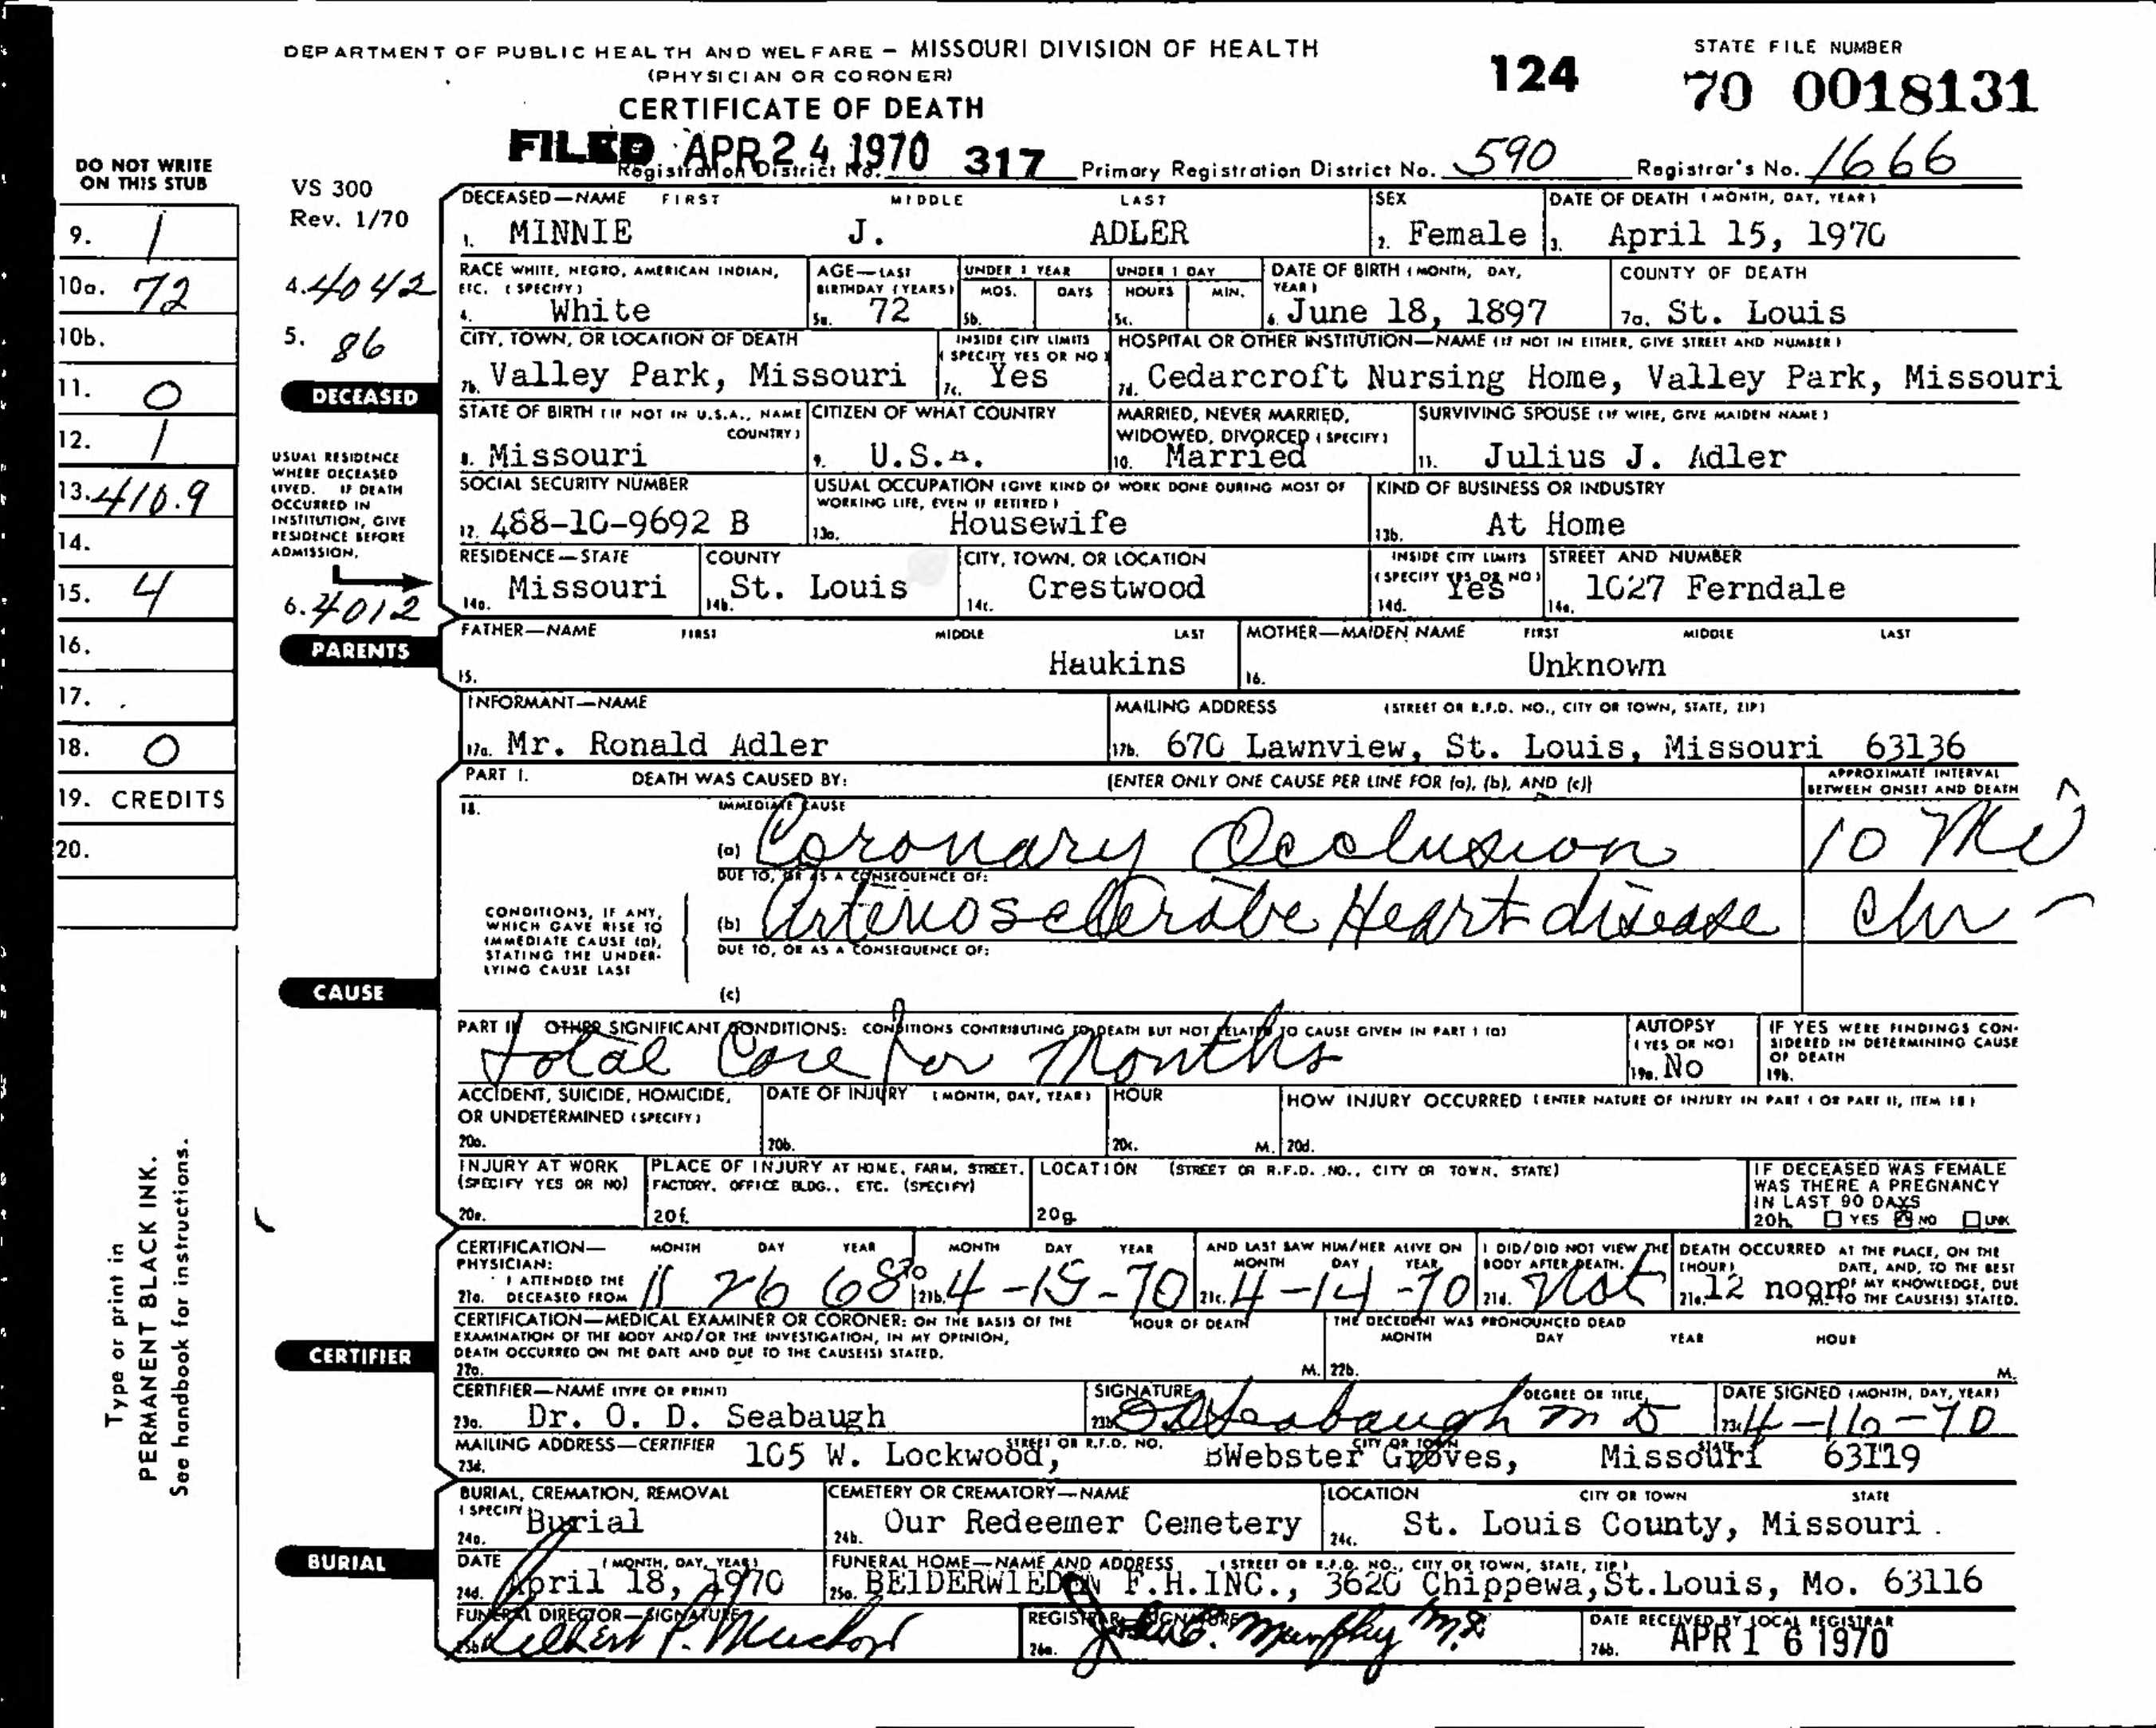 DEPARTMENT OF PUBLIC HEALTH AND WELFARE – MISSOURI DIVISION OF HEALTH
(PHYSICIAN OR CORONER)
CERTIFICATE OF DEATH
124
STATE FILE NUMBER
70 0018131
FILED APR 24 1970
Registration District No. 317 Primary Registration District No. 590 Registrar's No. 1666
DO NOT WRITE
ON THIS STUB
9. 1
10a. 72
10b.
11. 0
12. 1
13. 410.9
14.
15. 4
16.
17.
18. 0
19. CREDITS
20.
Type or print in
PERMANENT BLACK INK.
See handbook for instructions.
VS 300
Rev. 1/70
4. 4042
5. 86
DECEASED
USUAL RESIDENCE
WHERE DECEASED
LIVED. IF DEATH
OCCURRED IN
INSTITUTION, GIVE
RESIDENCE BEFORE
ADMISSION.
6. 4012
DECEASED—NAME FIRST MIDDLE LAST
1. MINNIE J. ADLER
SEX
2. Female
DATE OF DEATH (MONTH, DAY, YEAR)
3. April 15, 1970
RACE WHITE, NEGRO, AMERICAN INDIAN,
ETC. (SPECIFY)
4. White
AGE—LAST
BIRTHDAY (YEARS)
5a. 72
UNDER 1 YEAR
MOS. DAYS
5b.
UNDER 1 DAY
HOURS MIN.
5c.
DATE OF BIRTH (MONTH, DAY,
YEAR)
6. June 18, 1897
COUNTY OF DEATH
7a. St. Louis
CITY, TOWN, OR LOCATION OF DEATH
7b. Valley Park, Missouri
INSIDE CITY LIMITS
(SPECIFY YES OR NO)
7c. Yes
HOSPITAL OR OTHER INSTITUTION—NAME (IF NOT IN EITHER, GIVE STREET AND NUMBER)
7d. Cedarcroft Nursing Home, Valley Park, Missouri
STATE OF BIRTH (IF NOT IN U.S.A., NAME
COUNTRY)
8. Missouri
CITIZEN OF WHAT COUNTRY
9. U.S.A.
MARRIED, NEVER MARRIED,
WIDOWED, DIVORCED (SPECIFY)
10. Married
SURVIVING SPOUSE (IF WIFE, GIVE MAIDEN NAME)
11. Julius J. Adler
SOCIAL SECURITY NUMBER
12. 488-10-9692 B
USUAL OCCUPATION (GIVE KIND OF WORK DONE DURING MOST OF
WORKING LIFE, EVEN IF RETIRED)
13a. Housewife
KIND OF BUSINESS OR INDUSTRY
13b. At Home
RESIDENCE—STATE
14a. Missouri
COUNTY
14b. St. Louis
CITY, TOWN, OR LOCATION
14c. Crestwood
INSIDE CITY LIMITS
(SPECIFY YES OR NO)
14d. Yes
STREET AND NUMBER
14e. 1027 Ferndale
PARENTS
FATHER—NAME FIRST MIDDLE LAST
15. Haukins
MOTHER—MAIDEN NAME FIRST MIDDLE LAST
16. Unknown
INFORMANT—NAME
17a. Mr. Ronald Adler
MAILING ADDRESS (STREET OR R.F.D. NO., CITY OR TOWN, STATE, ZIP)
17b. 670 Lawnview, St. Louis, Missouri 63136
PART I. DEATH WAS CAUSED BY: [ENTER ONLY ONE CAUSE PER LINE FOR (a), (b), AND (c)]
APPROXIMATE INTERVAL
BETWEEN ONSET AND DEATH
18.
IMMEDIATE CAUSE
(a) Coronary Occlusion 10 Mi
DUE TO, OR AS A CONSEQUENCE OF:
CONDITIONS, IF ANY,
WHICH GAVE RISE TO
IMMEDIATE CAUSE (a),
STATING THE UNDER-
LYING CAUSE LAST
(b) Arteriosclerotic Heart disease chr
DUE TO, OR AS A CONSEQUENCE OF:
CAUSE
(c)
PART II OTHER SIGNIFICANT CONDITIONS: CONDITIONS CONTRIBUTING TO DEATH BUT NOT RELATED TO CAUSE GIVEN IN PART I (a)
total Care for Months
AUTOPSY
(YES OR NO)
19a. No
IF YES WERE FINDINGS CON-
SIDERED IN DETERMINING CAUSE
OF DEATH
19b.
ACCIDENT, SUICIDE, HOMICIDE,
OR UNDETERMINED (SPECIFY)
20a.
DATE OF INJURY (MONTH, DAY, YEAR)
20b.
HOUR
20c. M.
HOW INJURY OCCURRED (ENTER NATURE OF INJURY IN PART I OR PART II, ITEM 18)
20d.
INJURY AT WORK
(SPECIFY YES OR NO)
20e.
PLACE OF INJURY AT HOME, FARM, STREET,
FACTORY, OFFICE BLDG., ETC. (SPECIFY)
20f.
LOCATION (STREET OR R.F.D. NO., CITY OR TOWN, STATE)
20g.
IF DECEASED WAS FEMALE
WAS THERE A PREGNANCY
IN LAST 90 DAYS
20h. YES NO UNK
CERTIFICATION—
PHYSICIAN:
I ATTENDED THE
21a. DECEASED FROM
MONTH DAY YEAR
11 26 68
TO
MONTH DAY YEAR
21b. 4-15-70
AND LAST SAW HIM/HER ALIVE ON
MONTH DAY YEAR
21c. 4-14-70
I DID/DID NOT VIEW THE
BODY AFTER DEATH.
21d. Not
DEATH OCCURRED AT THE PLACE, ON THE
(HOUR) DATE, AND, TO THE BEST
OF MY KNOWLEDGE, DUE
21e. 12 noon M. TO THE CAUSE(S) STATED.
CERTIFIER
CERTIFICATION—MEDICAL EXAMINER OR CORONER: ON THE BASIS OF THE
EXAMINATION OF THE BODY AND/OR THE INVESTIGATION, IN MY OPINION,
DEATH OCCURRED ON THE DATE AND DUE TO THE CAUSE(S) STATED.
22a.
HOUR OF DEATH
M.
THE DECEDENT WAS PRONOUNCED DEAD
MONTH DAY YEAR HOUR
22b. M.
CERTIFIER—NAME (TYPE OR PRINT)
23a. Dr. O. D. Seabaugh
SIGNATURE DEGREE OR TITLE
23b. O D Seabaugh M D
DATE SIGNED (MONTH, DAY, YEAR)
23c. 4-16-70
MAILING ADDRESS—CERTIFIER STREET OR R.F.D. NO. CITY OR TOWN STATE
23d. 105 W. Lockwood, Webster Groves, Missouri 63119
BURIAL
BURIAL, CREMATION, REMOVAL
(SPECIFY)
24a. Burial
CEMETERY OR CREMATORY—NAME
24b. Our Redeemer Cemetery
LOCATION CITY OR TOWN STATE
24c. St. Louis County, Missouri.
DATE (MONTH, DAY, YEAR)
24d. April 18, 1970
FUNERAL HOME—NAME AND ADDRESS (STREET OR R.F.D. NO., CITY OR TOWN, STATE, ZIP)
25a. BEIDERWIEDEN F.H.INC., 3620 Chippewa, St.Louis, Mo. 63116
FUNERAL DIRECTOR—SIGNATURE
25b.
REGISTRAR—SIGNATURE
26a. John C. Murphy M.D.
DATE RECEIVED BY LOCAL REGISTRAR
26b. APR 16 1970